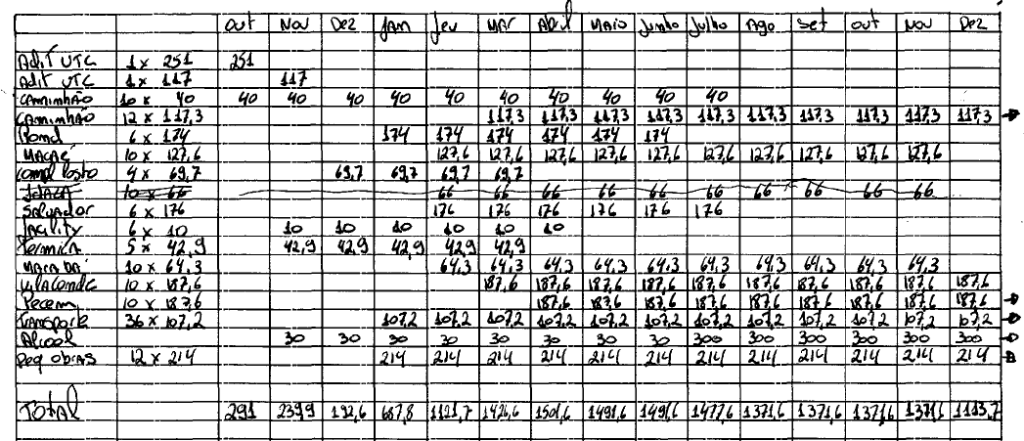 out Nov Dez Jan Fev MAR Abril MAIO Junho Julho Ago Set out Nov Dez
Adit UTC 1 x 251 251
Adit UTC 1 x 117 117
CAminhão 10 x 40 40 40 40 40 40 40 40 40 40 40
CAminhão 12 x 117,3 117,3 117,3 117,3 117,3 117,3 117,3 117,3 117,3 117,3 117,3
6 x 174 174 174 174 174 174 174
MACAÉ 10 x 127,6 127,6 127,6 127,6 127,6 127,6 127,6 127,6 127,6 127,6 127,6
4 x 69,7 69,7 69,7 69,7 69,7
10 x 66 66 66 66 66 66 66 66 66 66 66
SAlvador 6 x 176 176 176 176 176 176 176
FAcility 6 x 10 10 10 10 10 10 10
Termica 5 x 42,9 42,9 42,9 42,9 42,9 42,9
10 x 64,3 64,3 64,3 64,3 64,3 64,3 64,3 64,3 64,3 64,3 64,3
10 x 187,6 187,6 187,6 187,6 187,6 187,6 187,6 187,6 187,6 187,6 187,6
Pecem 10 x 187,6 187,6 187,6 187,6 187,6 187,6 187,6 187,6 187,6 187,6
Transporte 36 x 107,2 107,2 107,2 107,2 107,2 107,2 107,2 107,2 107,2 107,2 107,2 107,2 107,2
Alcool 30 30 30 30 30 30 30 30 300 300 300 300 300 300
Peq obras 12 x 214 214 214 214 214 214 214 214 214 214 214 214 214
Total 291 239,9 192,6 687,8 1121,7 1426,6 1501,6 1491,6 1491,6 1477,6 1371,6 1371,6 1371,6 1371,6 1113,7